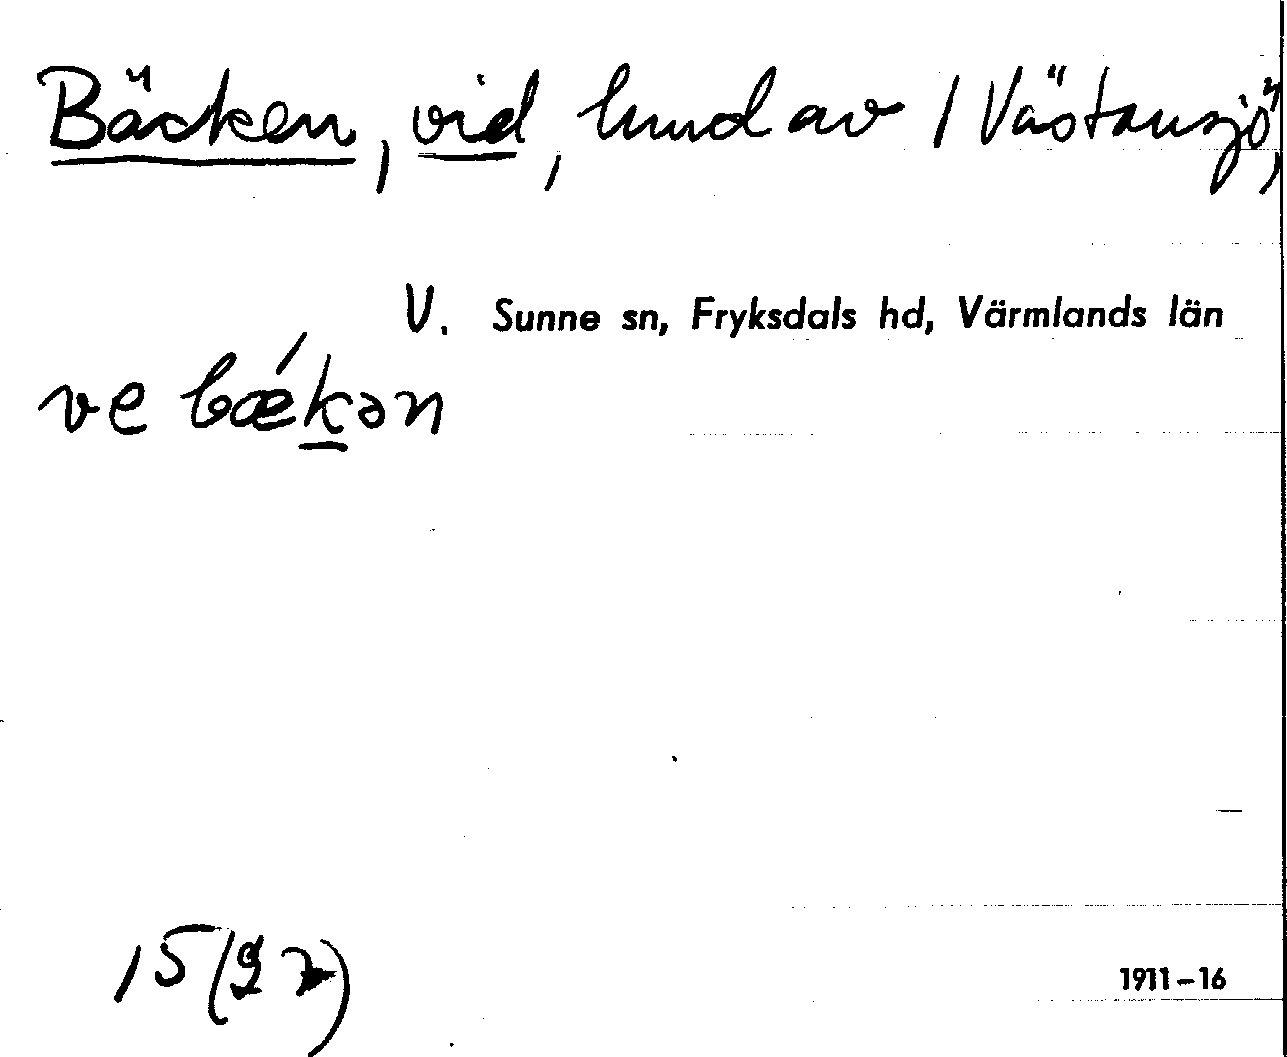 Bäcken, vid, hmd av 1 Västansjö,
V. Sunne sn, Fryksdals hd, Värmlands län
ve bǽk̲ən
15 (92)
1911-16